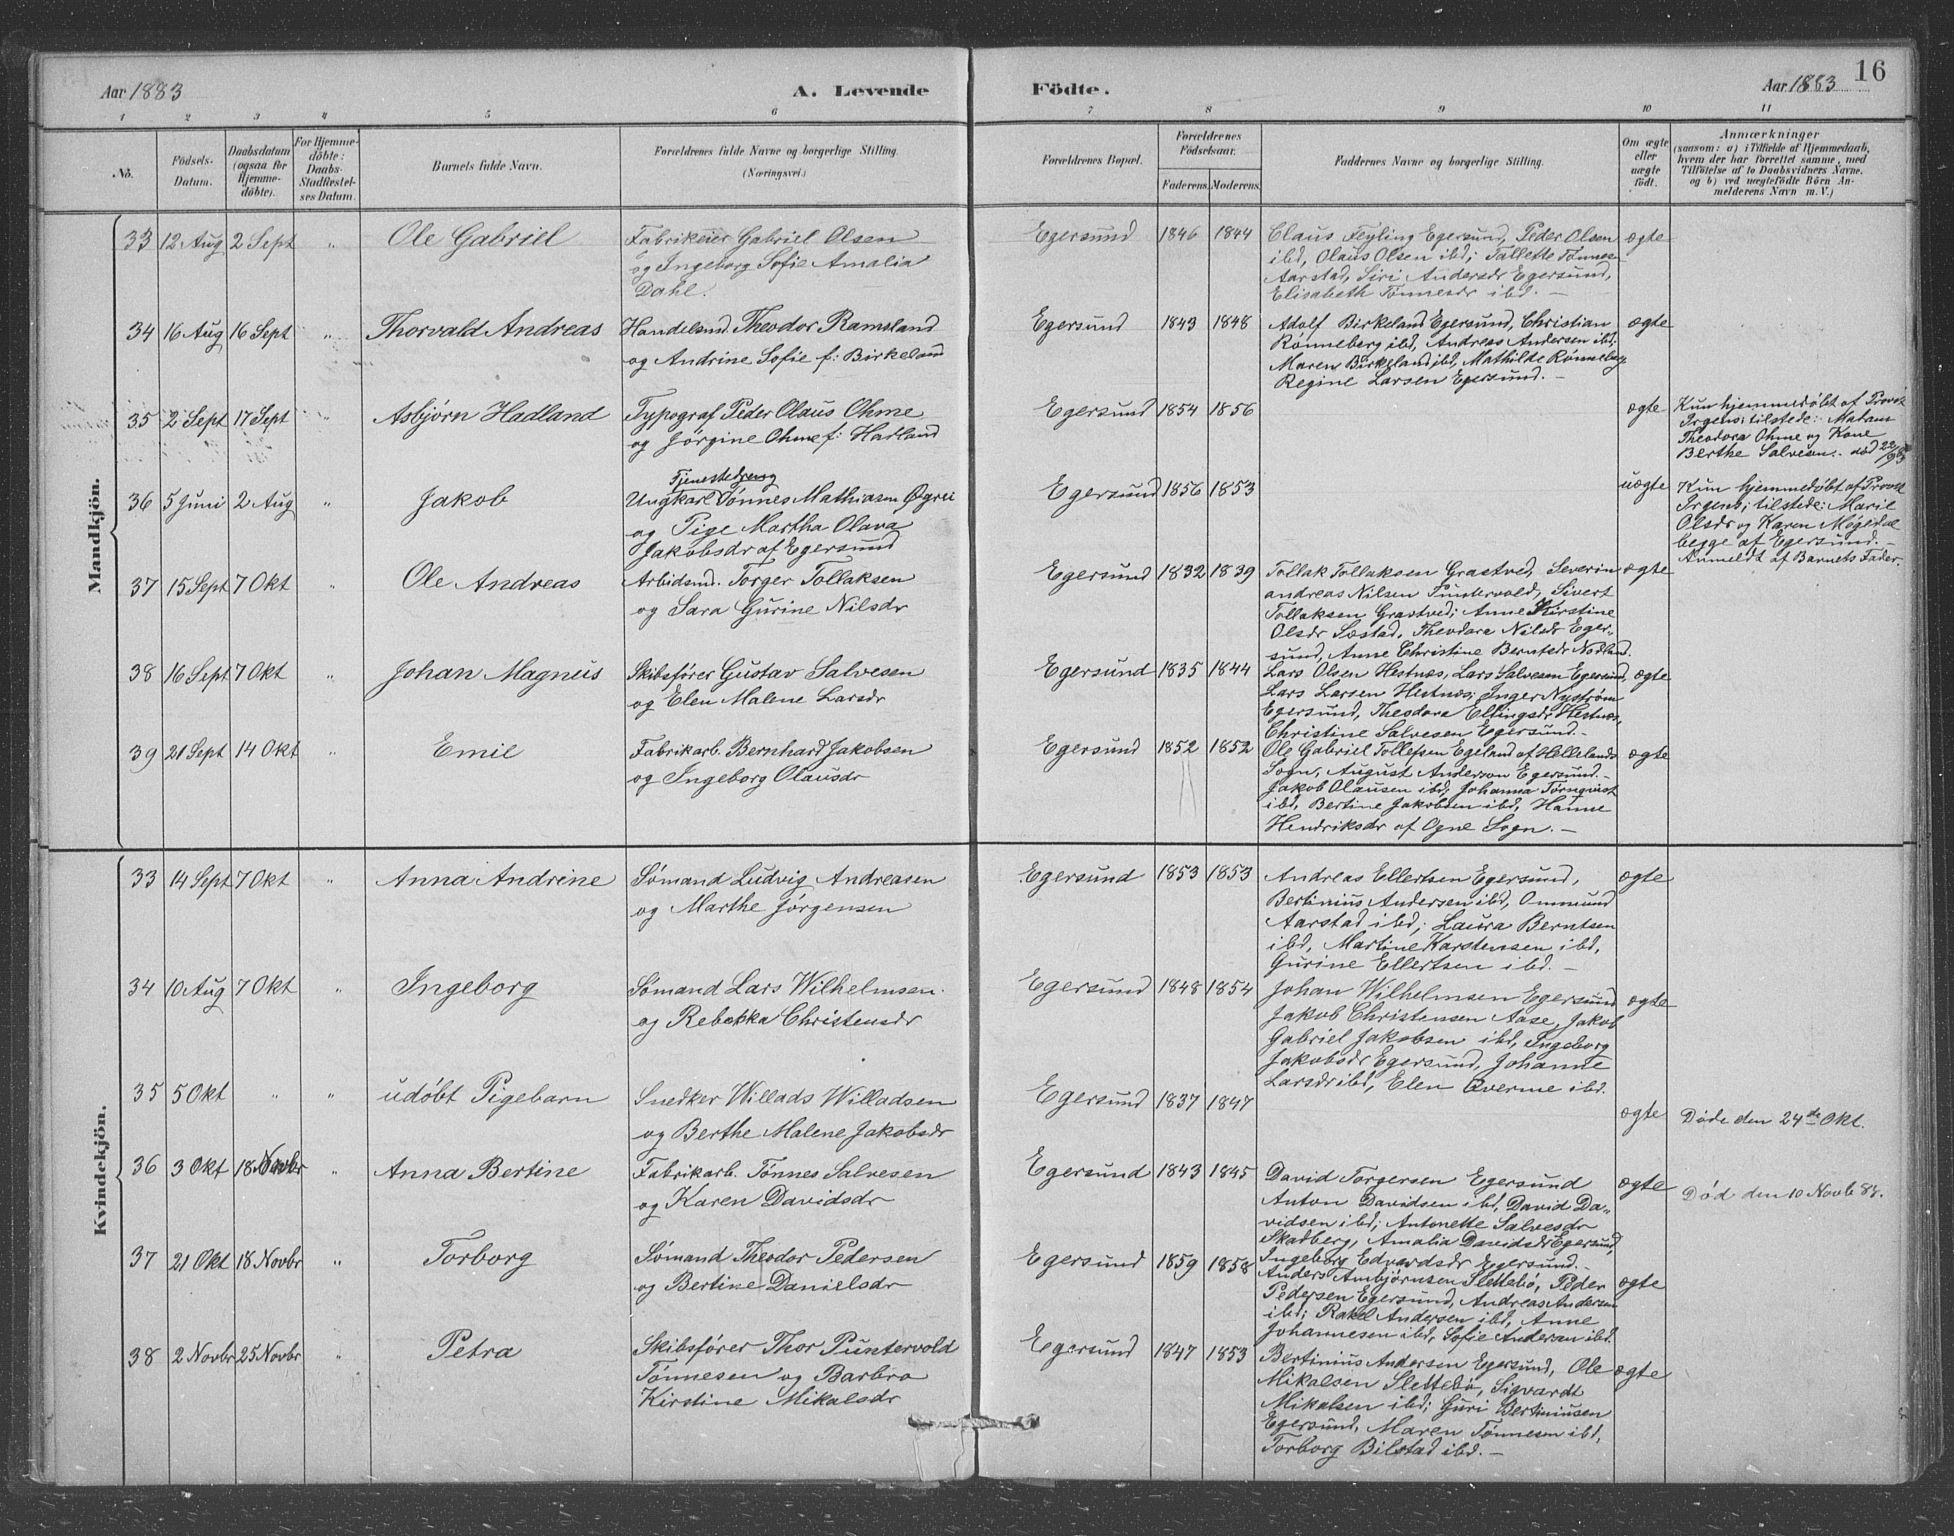 Aar 1883
A. Levende
Födte.
Aar 1883
16
1 2 3 4 5 6 7 8 9 10 11
No.
Födsels-
Datum.
Daabsdatum
(ogsaa for
Hjemme-
döbte).
For Hjemme-
döbte:
Daabs-
Stadfæstel-
ses Datum.
Barnets fulde Navn.
Forældrenes fulde Navne og borgerlige Stilling.
(Næringsvei.)
Forældrenes Bopæl.
Forældrenes
Födselsaar.
Faderens. Moderens.
Faddernes Navne og borgerlige Stilling.
Om ægte
eller
uægte
födt.
Anmærkninger
(saasom: a) i Tilfælde af Hjemmedaab,
hvem der har forrettet samme, med
Tilföielse af to Daabsvidners Navne.
og b) ved uægtefödte Börn An-
melderens Navn m. V.)
Mandkjön.
33 12 Aug 2 Sept " Ole Gabriel
Fabrikeier Gabriel Olsen
og Ingeborg Sofie Amalia
Dahl.
Egersund 1846 1844
Claus Feyling Egersund, Peder Olsen
ibd, Olaus Olsen ibd; Tallette Tønnes-
Aarstad, Siri Andersdr Egersund,
Elisabeth Tønnesdr ibd. —
ægte
34 16 Aug 16 Sept " Thorvald Andreas
Handelsmd. Theodor Ramsland
og Andrine Sofie f: Birkeland
Egersund 1843 1848
Adolf Birkeland Egersund, Christian
Rønneberg ibd, Andreas Andersen ibd;
Maren Birkeland ibd, Mathilde Rønneberg
Regine Larsen Egersund. —
ægte
35 2 Sept 17 Sept " Asbjørn Hadland
Typograf Peder Olaus Ohme
og Jørgine Ohme f: Hadland
Egersund 1854 1856
ægte
Kun hjemmedøbt af Provst
Irgens; tilstede: Madam
Theodora Ohme og Kone
Berthe Salvesen. død 22/9 83
36 5 Juni 2 Aug " Jakob
Tjenestedreng
Ungkarl Tønnes Mathiasen Øgrei
og Pige Martha Olava
Jakobsdr af Egersund
Egersund 1856 1853
uægte
Kun hjemmedøbt af Provst
Irgens; tilstede: Marie
Olsdr og Karen Møgedal
begge af Egersund. —
Anmeldt af Barnets Fader.
37 15 Sept 7 Okt " Ole Andreas
Arbidsmd. Torger Tollaksen
og Sara Gurine Nilsdr
Egersund 1832 1839
Tollak Tollaksen Grastved, Severin
andreas Nilsen Puntervold, Sivert
Tollaksen Grastved; Anne Kirstine
Olsdr Sæstad, Theodora Nilsdr Eger-
sund, Anne Christine Berntsdr Nodland.
ægte
38 16 Sept 7 Okt " Johan Magnus
Skibsfører Gustav Salvesen
og Elen Malene Larsdr
Egersund 1835 1844
Lars Olsen Hestnæs, Lars Salvesen Egersund,
Lars Larsen Hestnæs; Inger Nystrøm
Egersund, Theodora Ellingsdr Hestnæs,
Christine Salvesen Egersund. —
ægte
39 21 Sept 14 Okt " Emil
Fabrikarb. Bernhard Jakobsen
og Ingeborg Olausdr
Egersund 1852 1852
Ole Gabriel Tollefsen Egeland af Hellelands
Sogn, August Anderson Egersund. —
Jakob Olausen ibd; Johanna Tørnqvist
ibd, Bertine Jakobsen ibd, Hanne
Hendriksdr af Ogne Sogn. —
ægte
Kvindekjön.
33 14 Sept 7 Okt " Anna Andrine
Sømand Ludvig Andreasen
og Marthe Jørgensen
Egersund 1853 1853
Andreas Ellertsen Egersund,
Bertinius Andersen ibd, Ommund
Aarstad ibd; Laura Berntsen
ibd, Martine Karstensen ibd,
Gurine Ellertsen ibd. —
ægte
34 10 Aug 7 Okt " Ingeborg
Sømand Lars Wilhelmsen
og Rebekka Christensdr
Egersund 1848 1854
Johan Wilhelmsen Egersund
Jakob Christensen Aase, Jakob
Gabriel Jakobsen ibd, Ingeborg
Jakobsdr Egersund, Johanne
Larsdr ibd, Elen ibd.
ægte
35 5 Okt " " udøbt Pigebarn
Snedker Willads Willadsen
og Berthe Malene Jakobsdr
Egersund 1837 1847
ægte
Døde den 24de Okt.
36 3 Okt 18 Novbr " Anna Bertine
Fabrikarb. Tønnes Salvesen
og Karen Davidsdr
Egersund 1843 1845
David Torgersen Egersund
Anton Davidsen ibd, David Da-
vidsen ibd; Antonette Salvesdr
Skadberg, Amalia Davidsdr Egersund,
Ingeborg Edvardsdr Egersund. —
ægte
Død den 10 Novb 83.
37 21 Okt 18 Novbr " Torborg
Sømand Theodor Pedersen
og Bertine Danielsdr
Egersund 1859 1858
Anders Ambjørnsen Slettebø, Peder
Pedersen Egersund, Andreas Andersen
ibd; Rakel Andersen ibd, Anne
Johannesen ibd, Sofie Andersen ibd.
ægte
38 2 Novbr 25 Novbr " Petra
Skibsfører Thor Puntervold
Tønnesen og Barbro
Kirstine Mikalsdr
Egersund 1847 1853
Bertinius Andersen Egersund, Ole
Mikalsen Slettebø, Sigvardt
Mikalsen ibd; Guri Bertiniusen
Egersund, Maren Tønnesen ibd,
Torborg Bilstad ibd. —
ægte